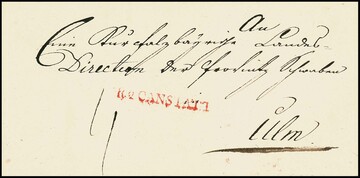 An
Eine Kurpfalzbayrische Landes-
Direction der Provintz Schwaben
R.4 CANSTATT
Ulm